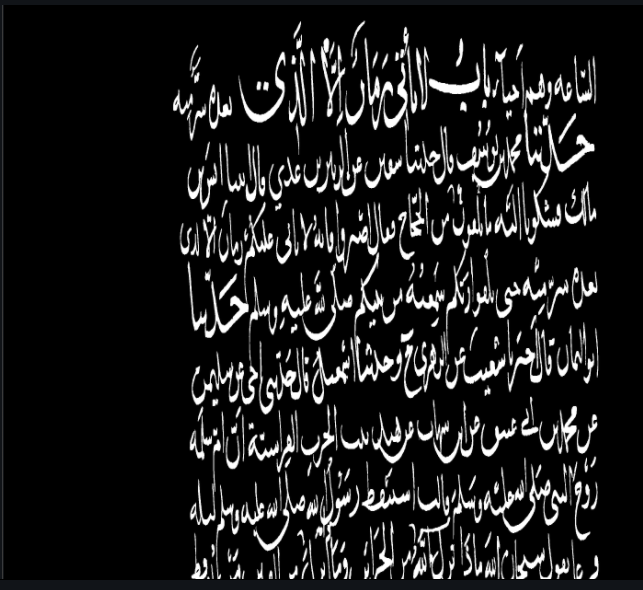 الساعة وهم احياء باب لا يأتي زمان إلا الذي بعده شر منه
حدثنا محمد بن يوسف قال حدثنا سفين عن الزبير بن عدي قال اتينا انس بن
مالك فشكونا اليه ما يلقون من الحجاج فقال اصبروا فانه لا ياتي عليكم زمان الا الذي
بعده شر منه حتى تلقوا ربكم سمعته من نبيكم صلى الله عليه وسلم حدثنا
ابو اليمان قال اخبرنا شعيب عن الزهري ح وحدثنا اسمعيل قال حدثني اخي عن سليمن
عن محمد بن ابي عتيق عن ابن شهاب عن هند بنت الحرث الفراسية ان ام سلمه
زوج النبي صلى الله عليه وسلم قالت استيقظ رسول الله صلى الله عليه وسلم ليله
فزعا يقول سبحان الله ماذا نزل الله من الخزائن وماذا انزل من الفتن من يوقظ